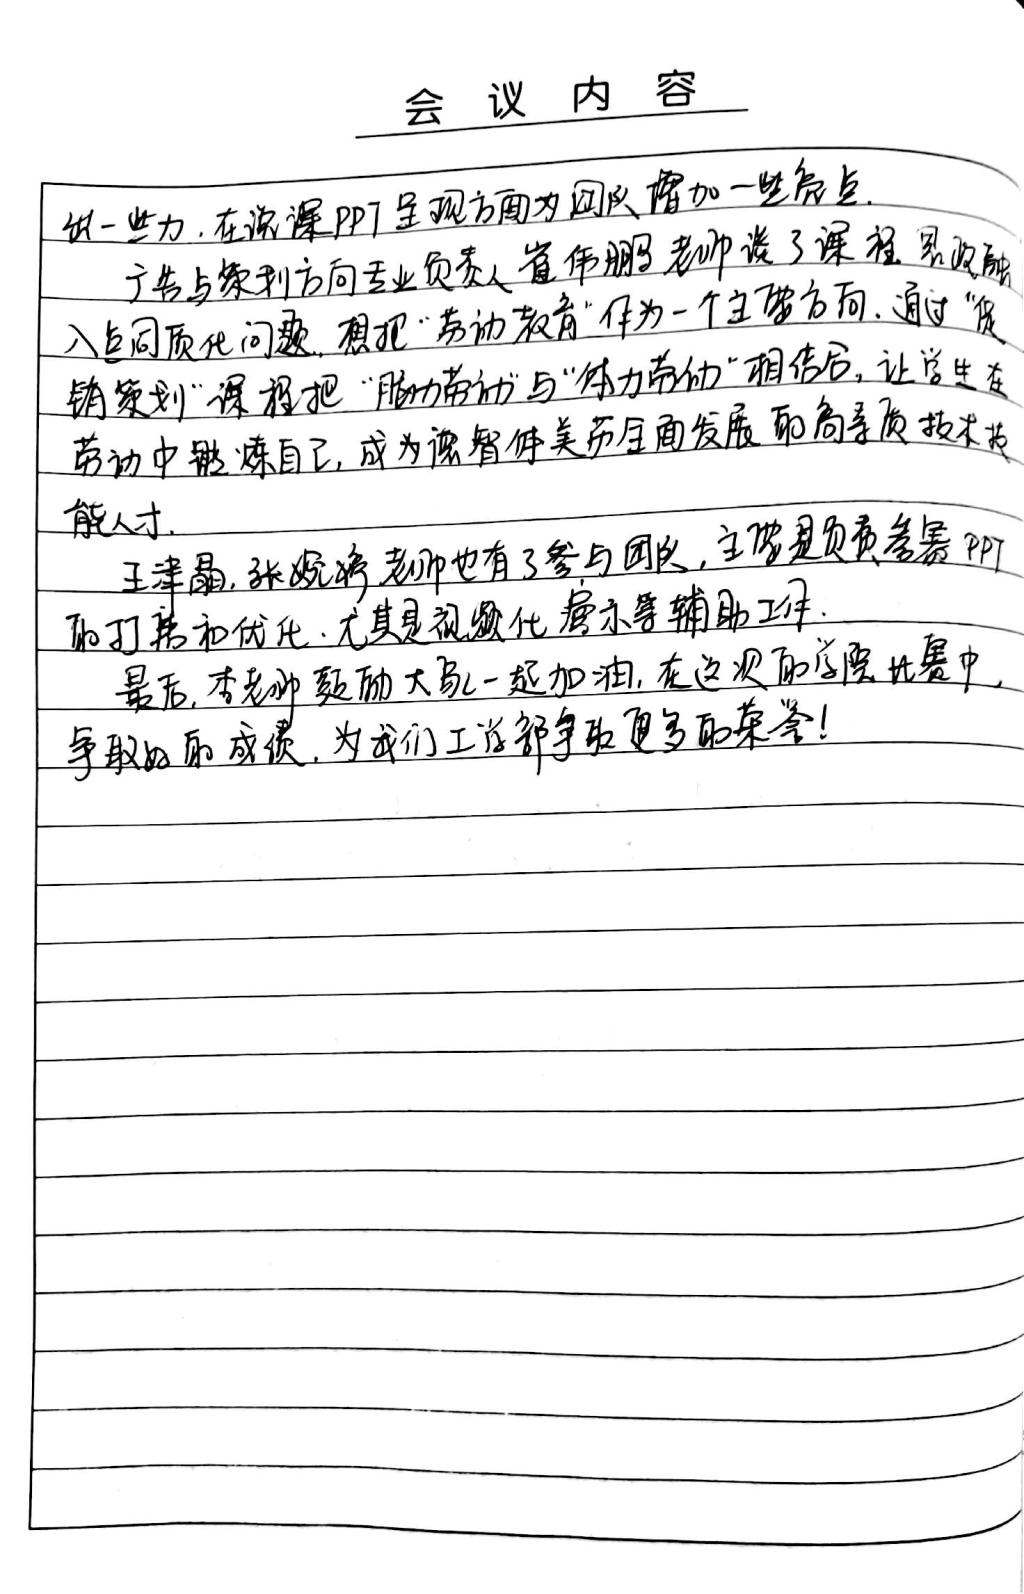 会议内容
做一些力，在说课PPT呈现方面为团队增加一些亮点.
广告与策划方向专业负责人崔伟鹏老师谈了课程思政融
入点同质化问题，想把“劳动教育”作为一个主要方向，通过“促
销策划”课程把“脑力劳动”与“体力劳动”相结合，让学生在
劳动中锻炼自己，成为德智体美劳全面发展的高素质技术技
能人才.
王津晶，张婉婷老师也有了参与团队，主要是负责参赛PPT
的打磨和优化.尤其是视频化展示等辅助工作.
最后，李老师鼓励大家一起加油，在这次的学院比赛中，
争取好的成绩，为我们工学部争取更多的荣誉！